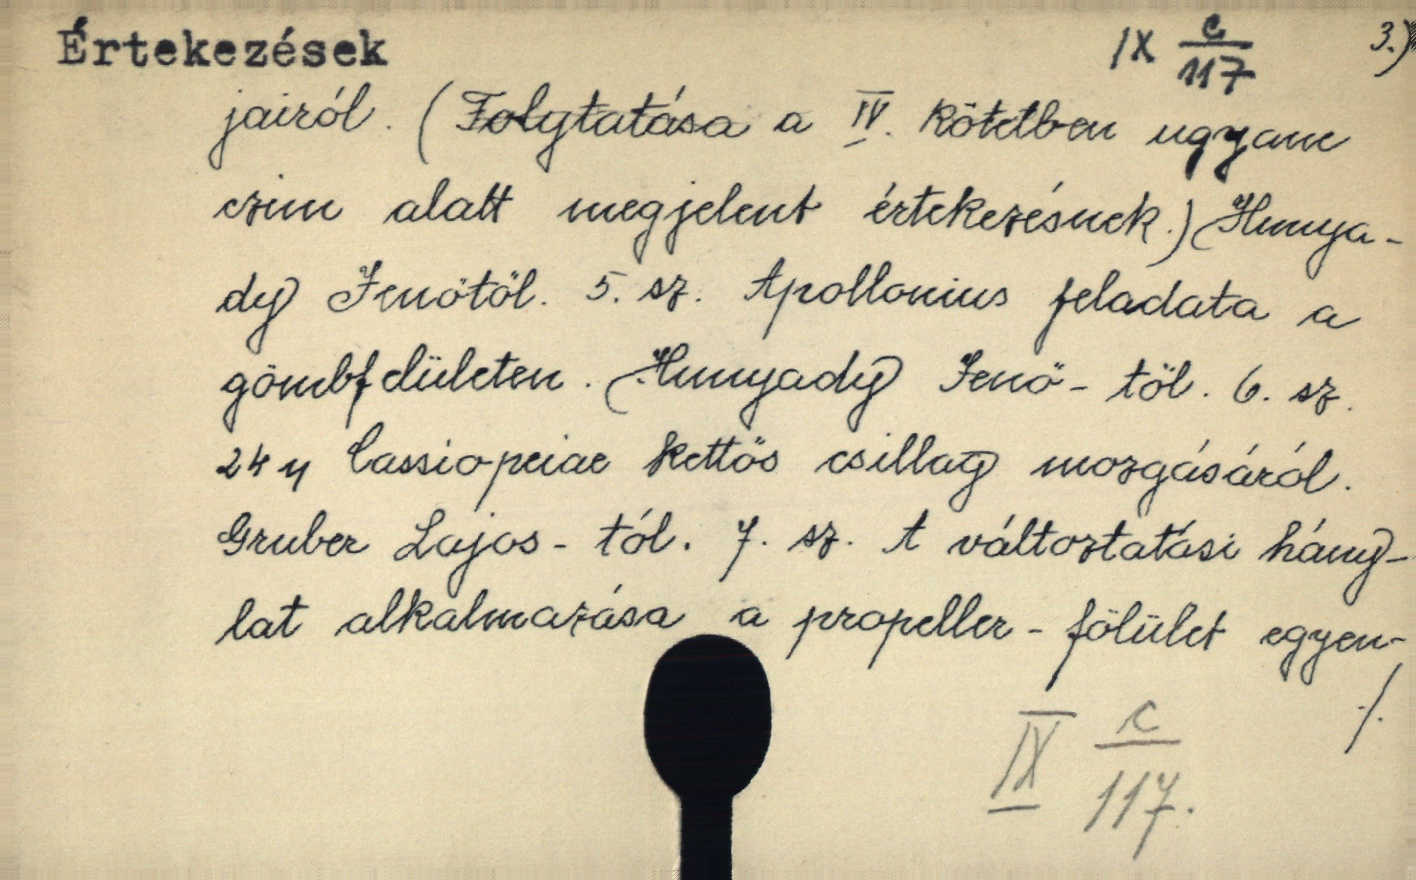 Értekezések IX c/117 3.)
jairól. (Folytatása a IV. kötetben ugyane
czim alatt megjelent értekezésnek.) Hunya-
dy Jenőtől. 5. sz. Apollonius feladata a
gömbfelületen. Hunyady Jenő-től. 6. sz.
24 η Cassiopeiae kettős csillag mozgásáról.
Gruber Lajos-tól. 7. sz. A változtatási hány-
lat alkalmazása a propeller-fölület egyen-
./.
IX c/117.